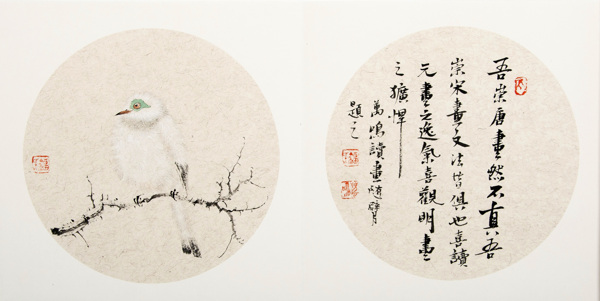 吾崇唐畫然不真吾
崇宋畫又法皆俱也喜讀
元畫之逸氣喜觀明畫
之獷悍
鳴讀畫隨
題之